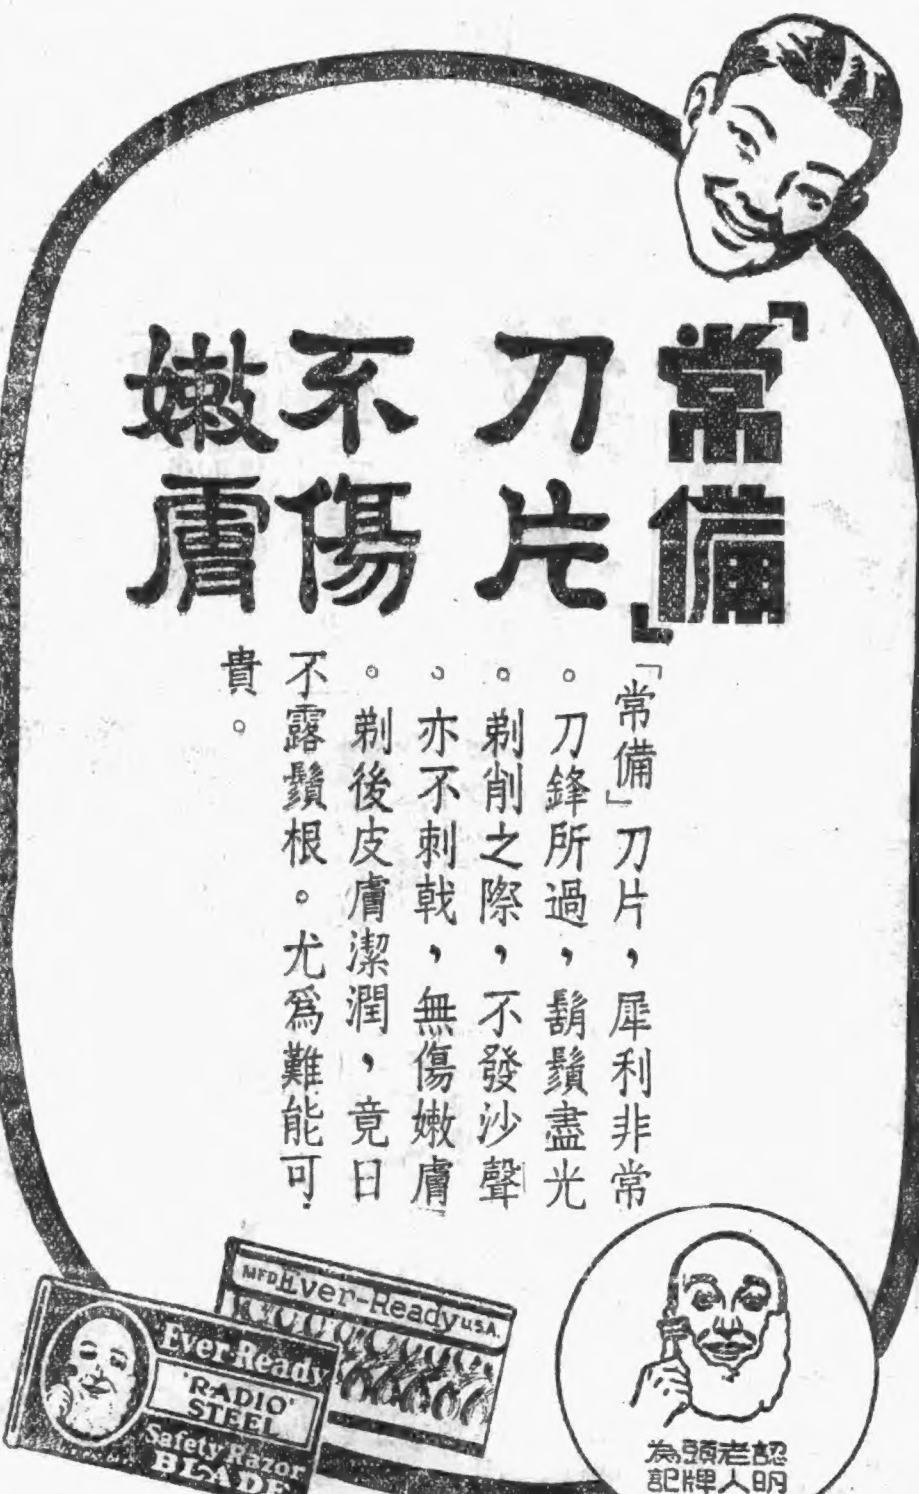 「常備」
刀片
不傷
嫩膚
「常備」刀片，犀利非常
。刀鋒所過，鬍鬚盡光
。剃削之際，不發沙聲
。亦不刺戟，無傷嫩膚
。剃後皮膚潔潤，竟日
不露鬚根。尤爲難能可
貴。
MFD Ever-Ready U.S.A.
Ever-Ready
'RADIO'
STEEL
Safety Razor
BLADE
認明
老人
頭牌
為記